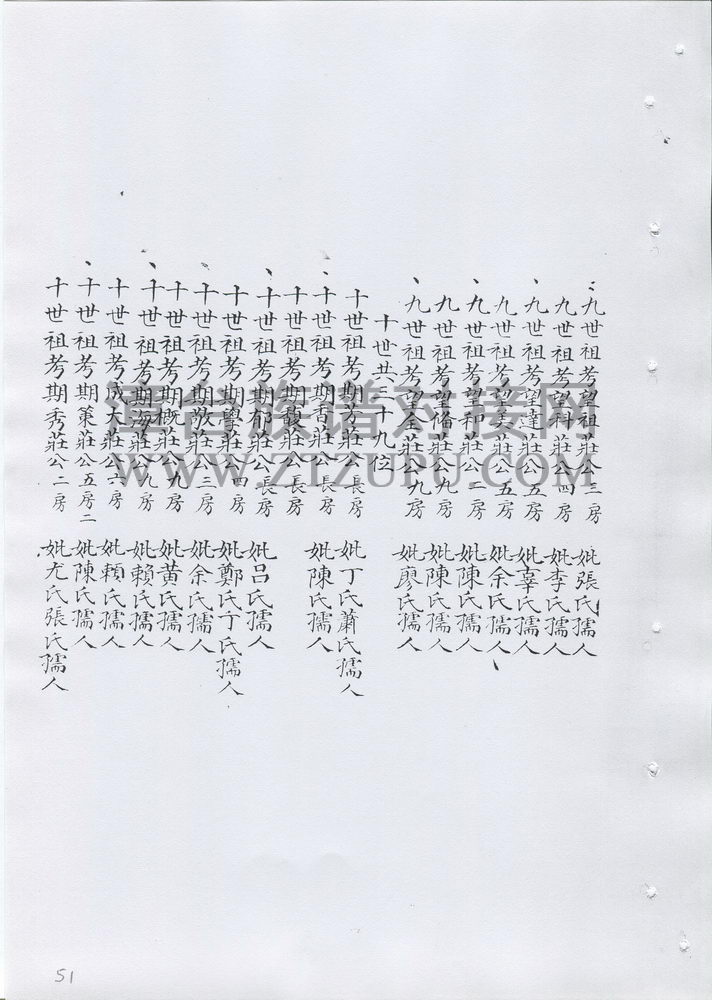 九世祖考望祖莊公三房 妣張氏孺人
九世祖考望科莊公四房 妣李氏孺人
九世祖考望達莊公五房 妣辜氏孺人
九世祖考望 莊公五房 妣余氏孺人
九世祖考望利莊公二房 妣陳氏孺人
九世祖考望脩莊公九房 妣陳氏孺人
九世祖考望全莊公九房 妣廖氏孺人
十世共三十九位
十世祖考期芳莊公長房 妣丁氏蕭氏孺人
十世祖考期香莊公長房 妣陳氏孺人
十世祖考期馥莊公長房
十世祖考期郁莊公長房 妣呂氏孺人
十世祖考期學莊公四房 妣鄭氏丁氏孺人
十世祖考期敬莊公三房 妣余氏孺人
十世祖考期概莊公九房 妣黃氏孺人
十世祖考期 莊公九房 妣賴氏孺人
十世祖考成大莊公六房 妣賴氏孺人
十世祖考期策莊公五房二 妣陳氏孺人
十世祖考期秀莊公二房 妣尤氏張氏孺人
族谱对接网
WWW.ZIZUPU.COM
51